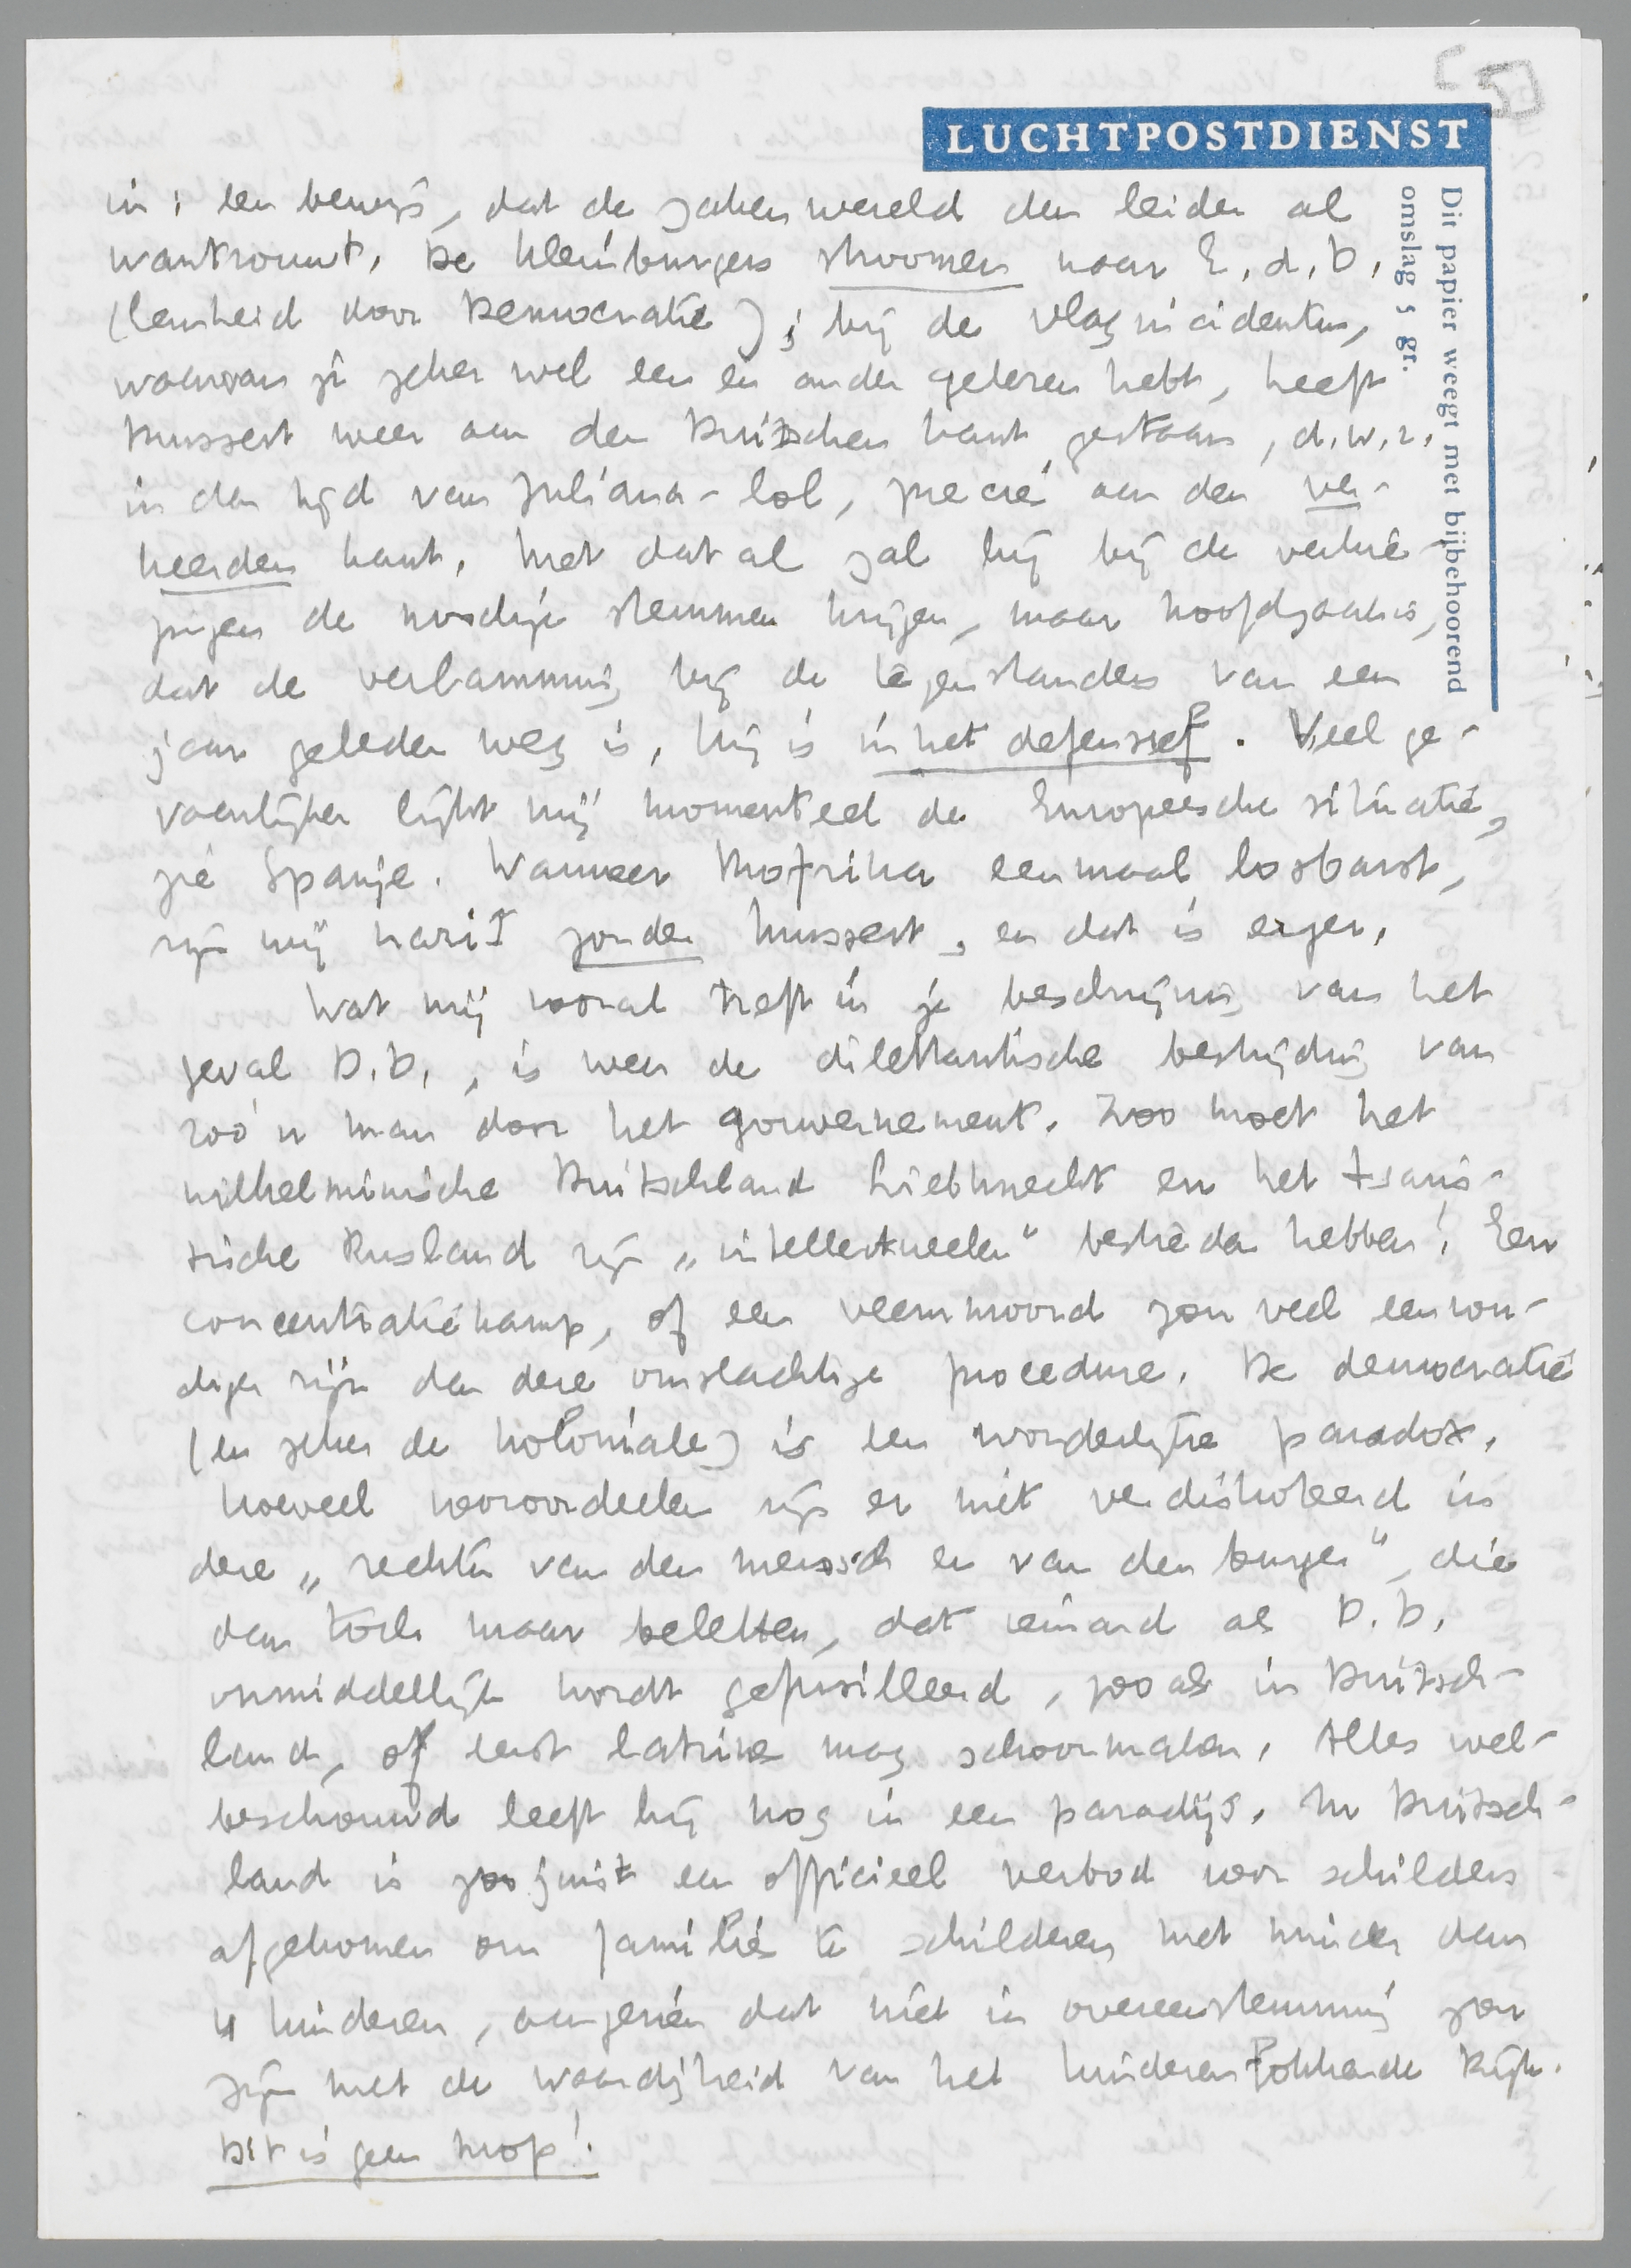 [5]
LUCHTPOSTDIENST
Dit papier weegt met bijbehoorend
omslag 5 gr.
in: een bewijs, dat de zakenwereld den leider al
wantrouwt. De kleinburgers stroomen naar E.d.D.
(Eenheid door Democratie); bij de vlagincidenten,
waarvan je zeker wel een en ander gelezen hebt, heeft
Mussert weer aan den Duitschen kant gestaan, d.w.z.
in den tijd van Juliana-lol, precies aan den ver-
keerden kant. Met dat al zal hij bij de verkie-
zingen de noodige stemmen krijgen, maar hoofdzaak is,
dat de verlamming bij de tegenstanders van een
jaar geleden weg is, hij is in het defensief. Veel ge-
vaarlijker lijkt mij momenteel de Europeesche situatie,
zie Spanje. Wanneer Moefrika eenmaal losbarst,
zijn wij nazi zonder Mussert, en dat is erger.
Wat mij vooral treft in je beschrijving van het
geval D.D., is weer de dilettantische bestrijding van
zoo'n man door het gouvernement. Zoo moet het
wilhelminische Duitschland Liebknecht en het tsaris-
tische Rusland zijn „intellectueelen" bestreden hebben! Een
concentratiekamp, of een veemmoord zou veel eenvou-
diger zijn dan deze omslachtige procedure. De democratie
(en zeker de koloniale) is een wonderlijke paradox.
Hoeveel vooroordeelen zijn er niet verdisconteerd in
deze „rechten van den mensch en van den burger", die
dan toch maar beletten, dat iemand als D.D.
onmiddellijk wordt gefusilleerd, zooals in Duitsch-
land, of eerst latrine mag schoonmaken. Alles wel-
beschouwd leeft hij nog in een paradijs. In Duitsch-
land is zoojuist een officieel verbod voor schilders
afgekomen om families te schilderen met minder dan
4 kinderen, aangezien dat niet in overeenstemming zou
zijn met de waardigheid van het kinderenfokkende Rijk.
Dit is geen mop!